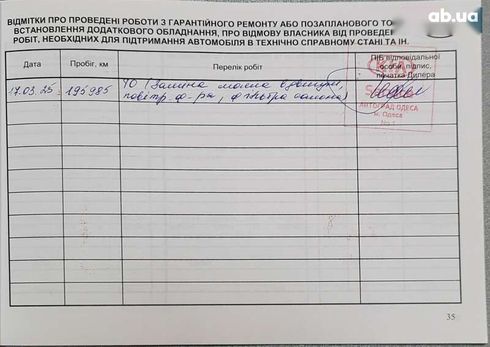 ab.ua
ВІДМІТКИ ПРО ПРОВЕДЕНІ РОБОТИ З ГАРАНТІЙНОГО РЕМОНТУ АБО ПОЗАПЛАНОВОГО ТО
ВСТАНОВЛЕННЯ ДОДАТКОВОГО ОБЛАДНАННЯ, ПРО ВІДМОВУ ВЛАСНИКА ВІД ПРОВЕДЕ
РОБІТ, НЕОБХІДНИХ ДЛЯ ПІДТРИМАННЯ АВТОМОБІЛЯ В ТЕХНІЧНО СПРАВНОМУ СТАНІ ТА ІН.
Дата Пробіг, км Перелік робіт ПІБ відповідальної
особи, підпис,
печатка Дилера
17.03.25 195985 ТО (Заміна масла
KIA
АВТОГРАД ОДЕСА
м. Одеса
35